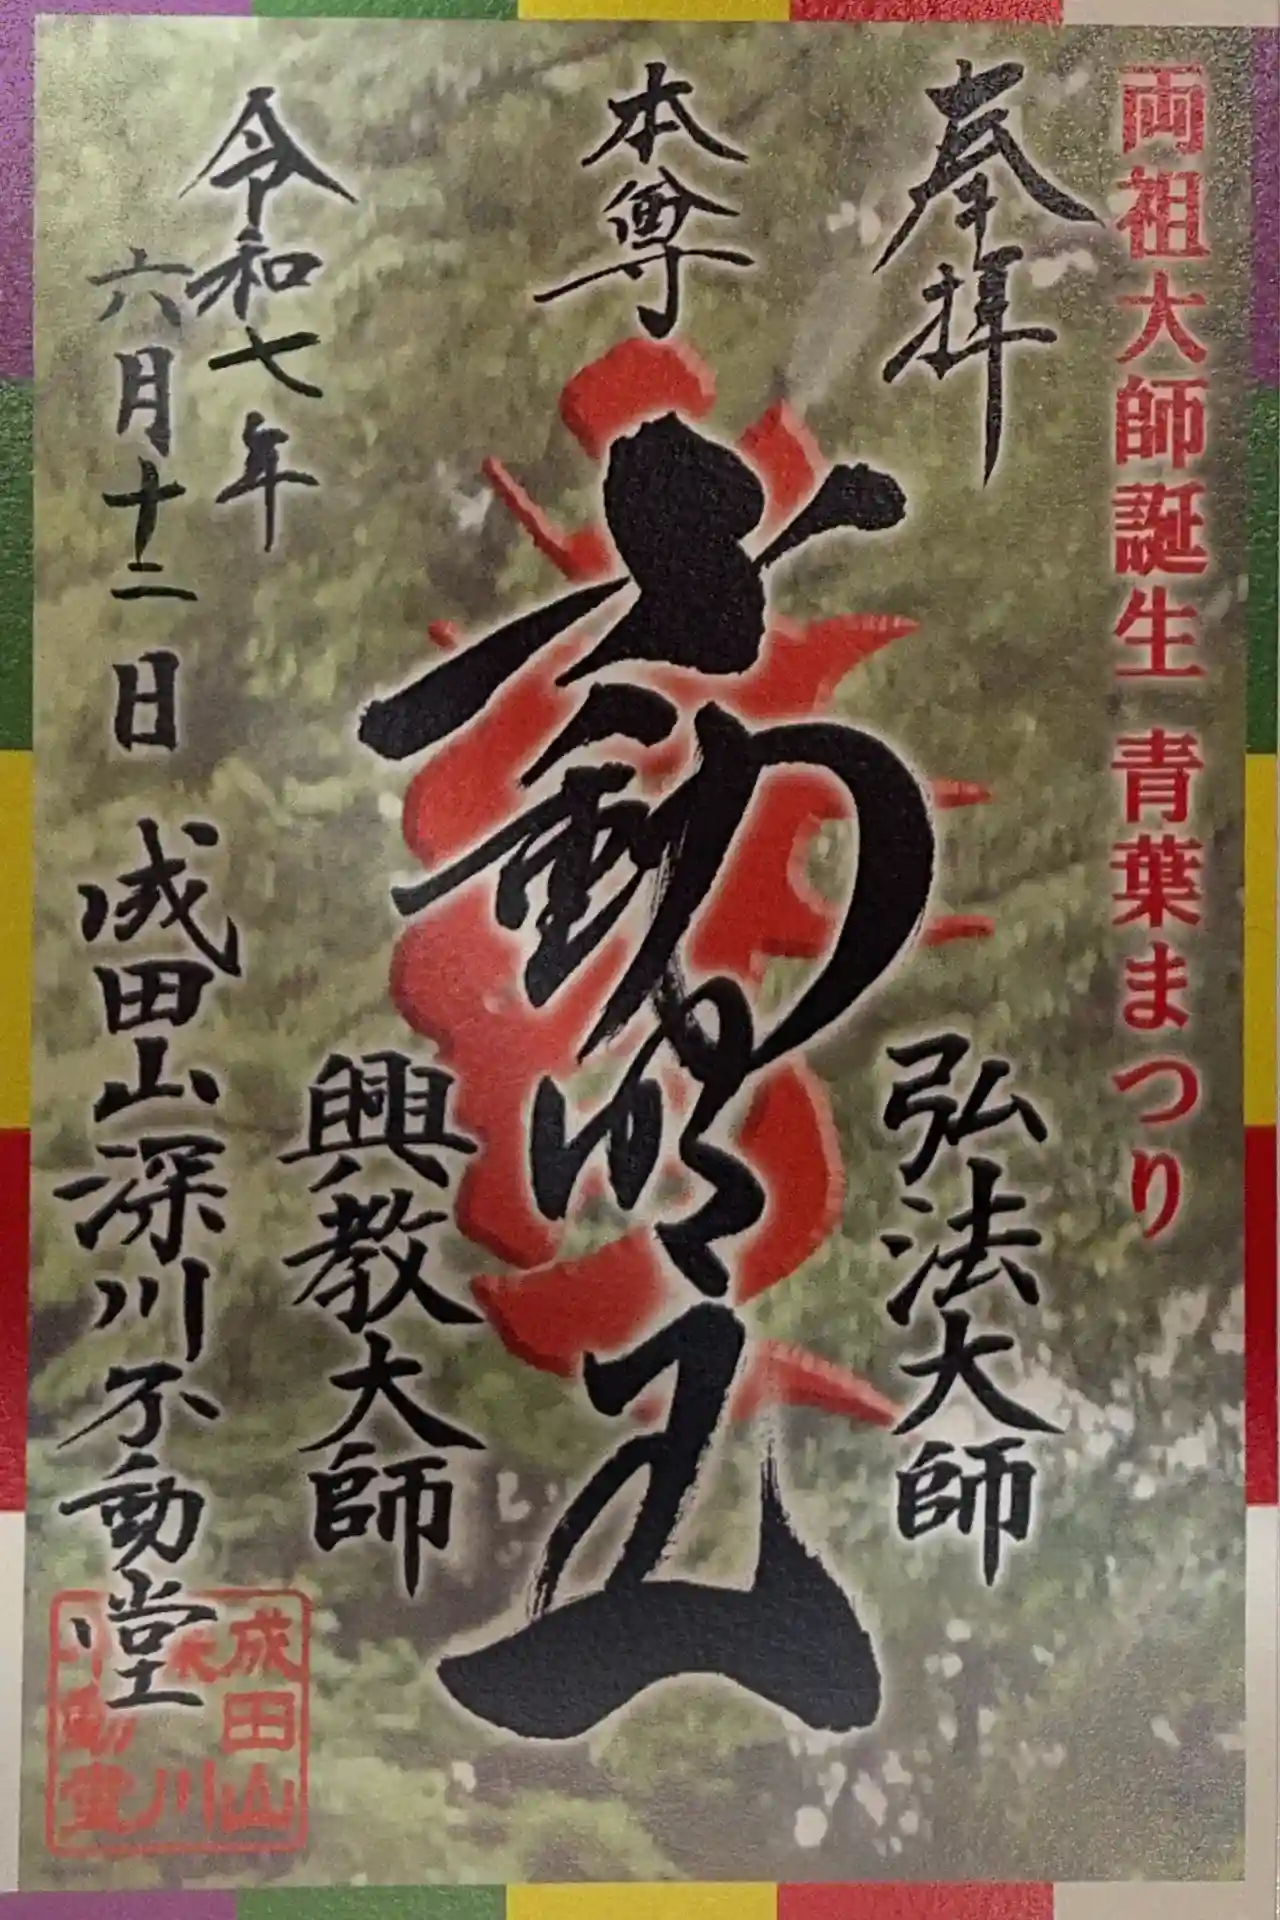 両祖大師誕生 青葉まつり
奉拝
弘法大師
本尊
不動明王
興教大師
令和七年
六月十二日
成田山深川不動堂
成田山
深川
不動堂